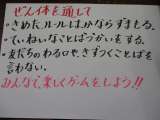 ぜん体を通して
・きめたルールはかならずまもる。
・ていねいなことばづかいをする。
・友だちのわる口や、きずつくことばを
言わない。
みんなで、楽しくゲームをしよう!!